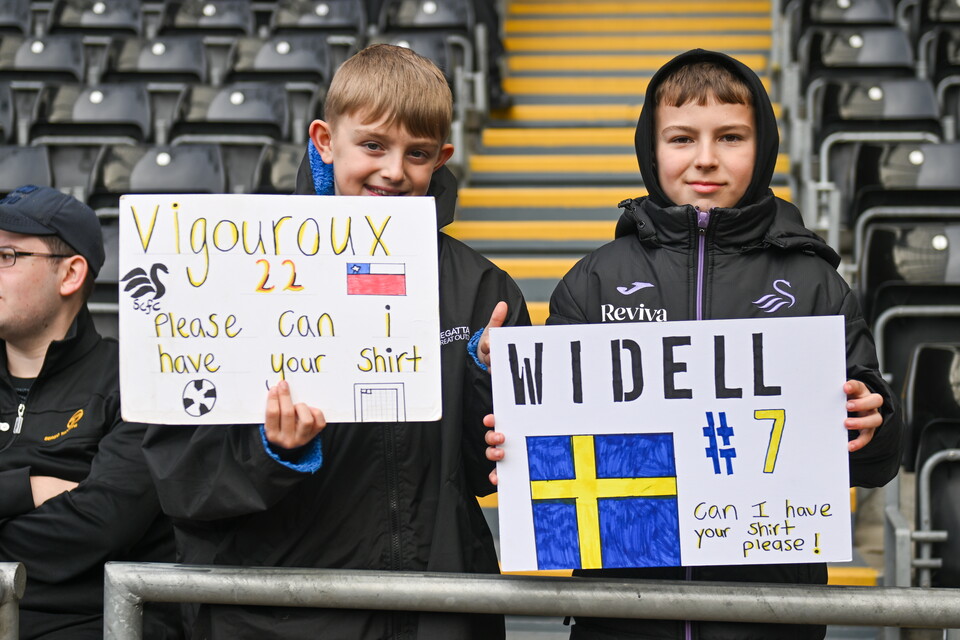 Vigouroux
22
SCFC
please can i
have your shirt
REGATTA
GREAT OUTDOORS
Reviva
WIDELL
#7
Can I have
your shirt
please!